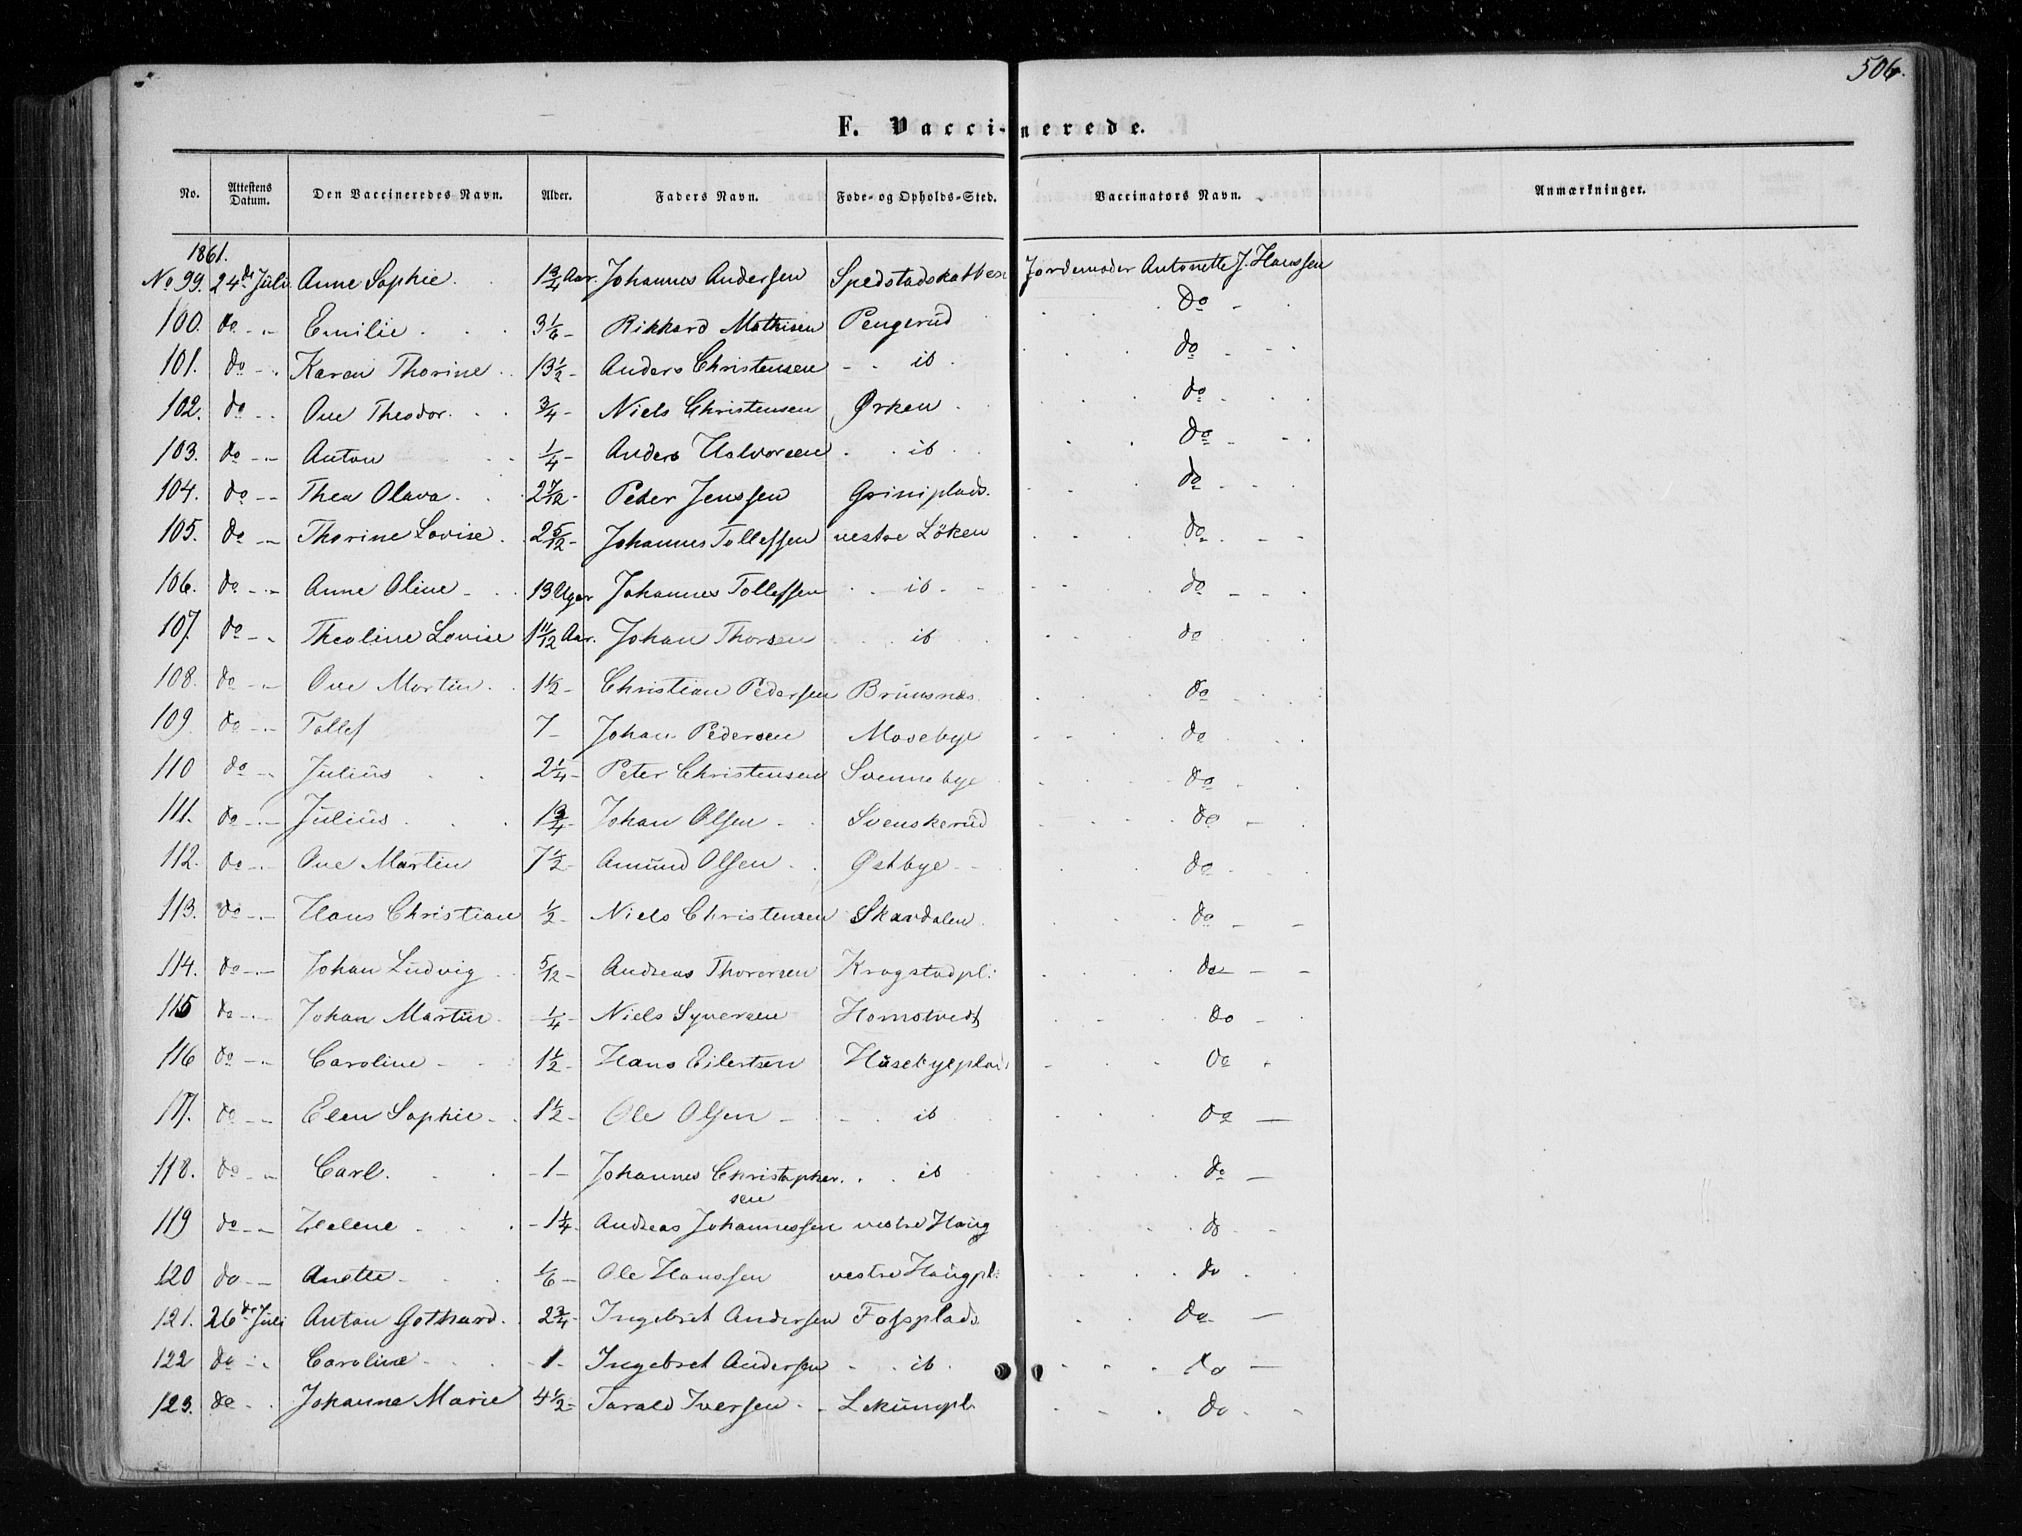 506.
F. Vaccinerede.
No. Attestens Datum. Den Vaccineredes Navn. Alder. Faders Navn. Føde- og Opholds-Sted. Vaccinators Navn. Anmærkninger.
1861.
No 99. 24de Juli Anne Sophie. 1 3/4 Aar. Johannes Andersen Jordemoder Antonette J. Hanssen
100. do Emilie 3 1/6 Rikkard Mathisen Pengerud do
101. do Karen Thorine 13 1/2 Anders Christensen ib. do
102. do Ove Theodor. 3/4 Niels Christensen Ørken do
103. do Anton 1/4 Anders Halvorsen ib do
104. do Thea Olava. 2 7/12 Peder Jenssen Griniplads. do
105. do Thorine Lovise 2 5/12 Johannes Tollefsen vestre Löken do
106. do Anne Oline 13 Uger Johannes Tollefsen ib. do
107. do Theoline Lovise 1 11/12 Aar. Johan Thorsen ib do
108. do Ove Martin. 1 1/2 Christian Pedersen Brunsnæs do
109 do Tollef 7 Johan Pedersen Mosebye do
110 do Julius 2 1/4 Peter Christensen Svennebye do
111. do Julius 1 3/4 Johan Olsen Svenskerud do
112. do Ove Martin 7 1/2 Amund Olsen Østbye do
113. do Hans Christian 1/2 Niels Christensen Skardalen do
114. do Johan Ludvig 5/12 Andreas Thorersen Krogstadpl: do
115 do Johan Martin 1/4 Niels Syversen Homstvedt do
116 do Caroline 1 1/2 Hans Eilertsen Husebyeplad do
117. do Elen Sophie 1 1/2 Ole Olsen ib do
118. do Carl. 1 Johannes Christopher ib do
sen
119 do Helene 1 1/4 Andreas Johannessen vestre Haug do
120 do Anette 1/6 Ole Hanssen vestre Haugpl: do
121. 26de Juli Anton Gothard. 2 3/4 Ingebret Andersen Fossplads do
122 do Caroline 1 Ingebret Andersen ib. do
123. do Johanne Marie 4 1/2 Tarald Iversen do